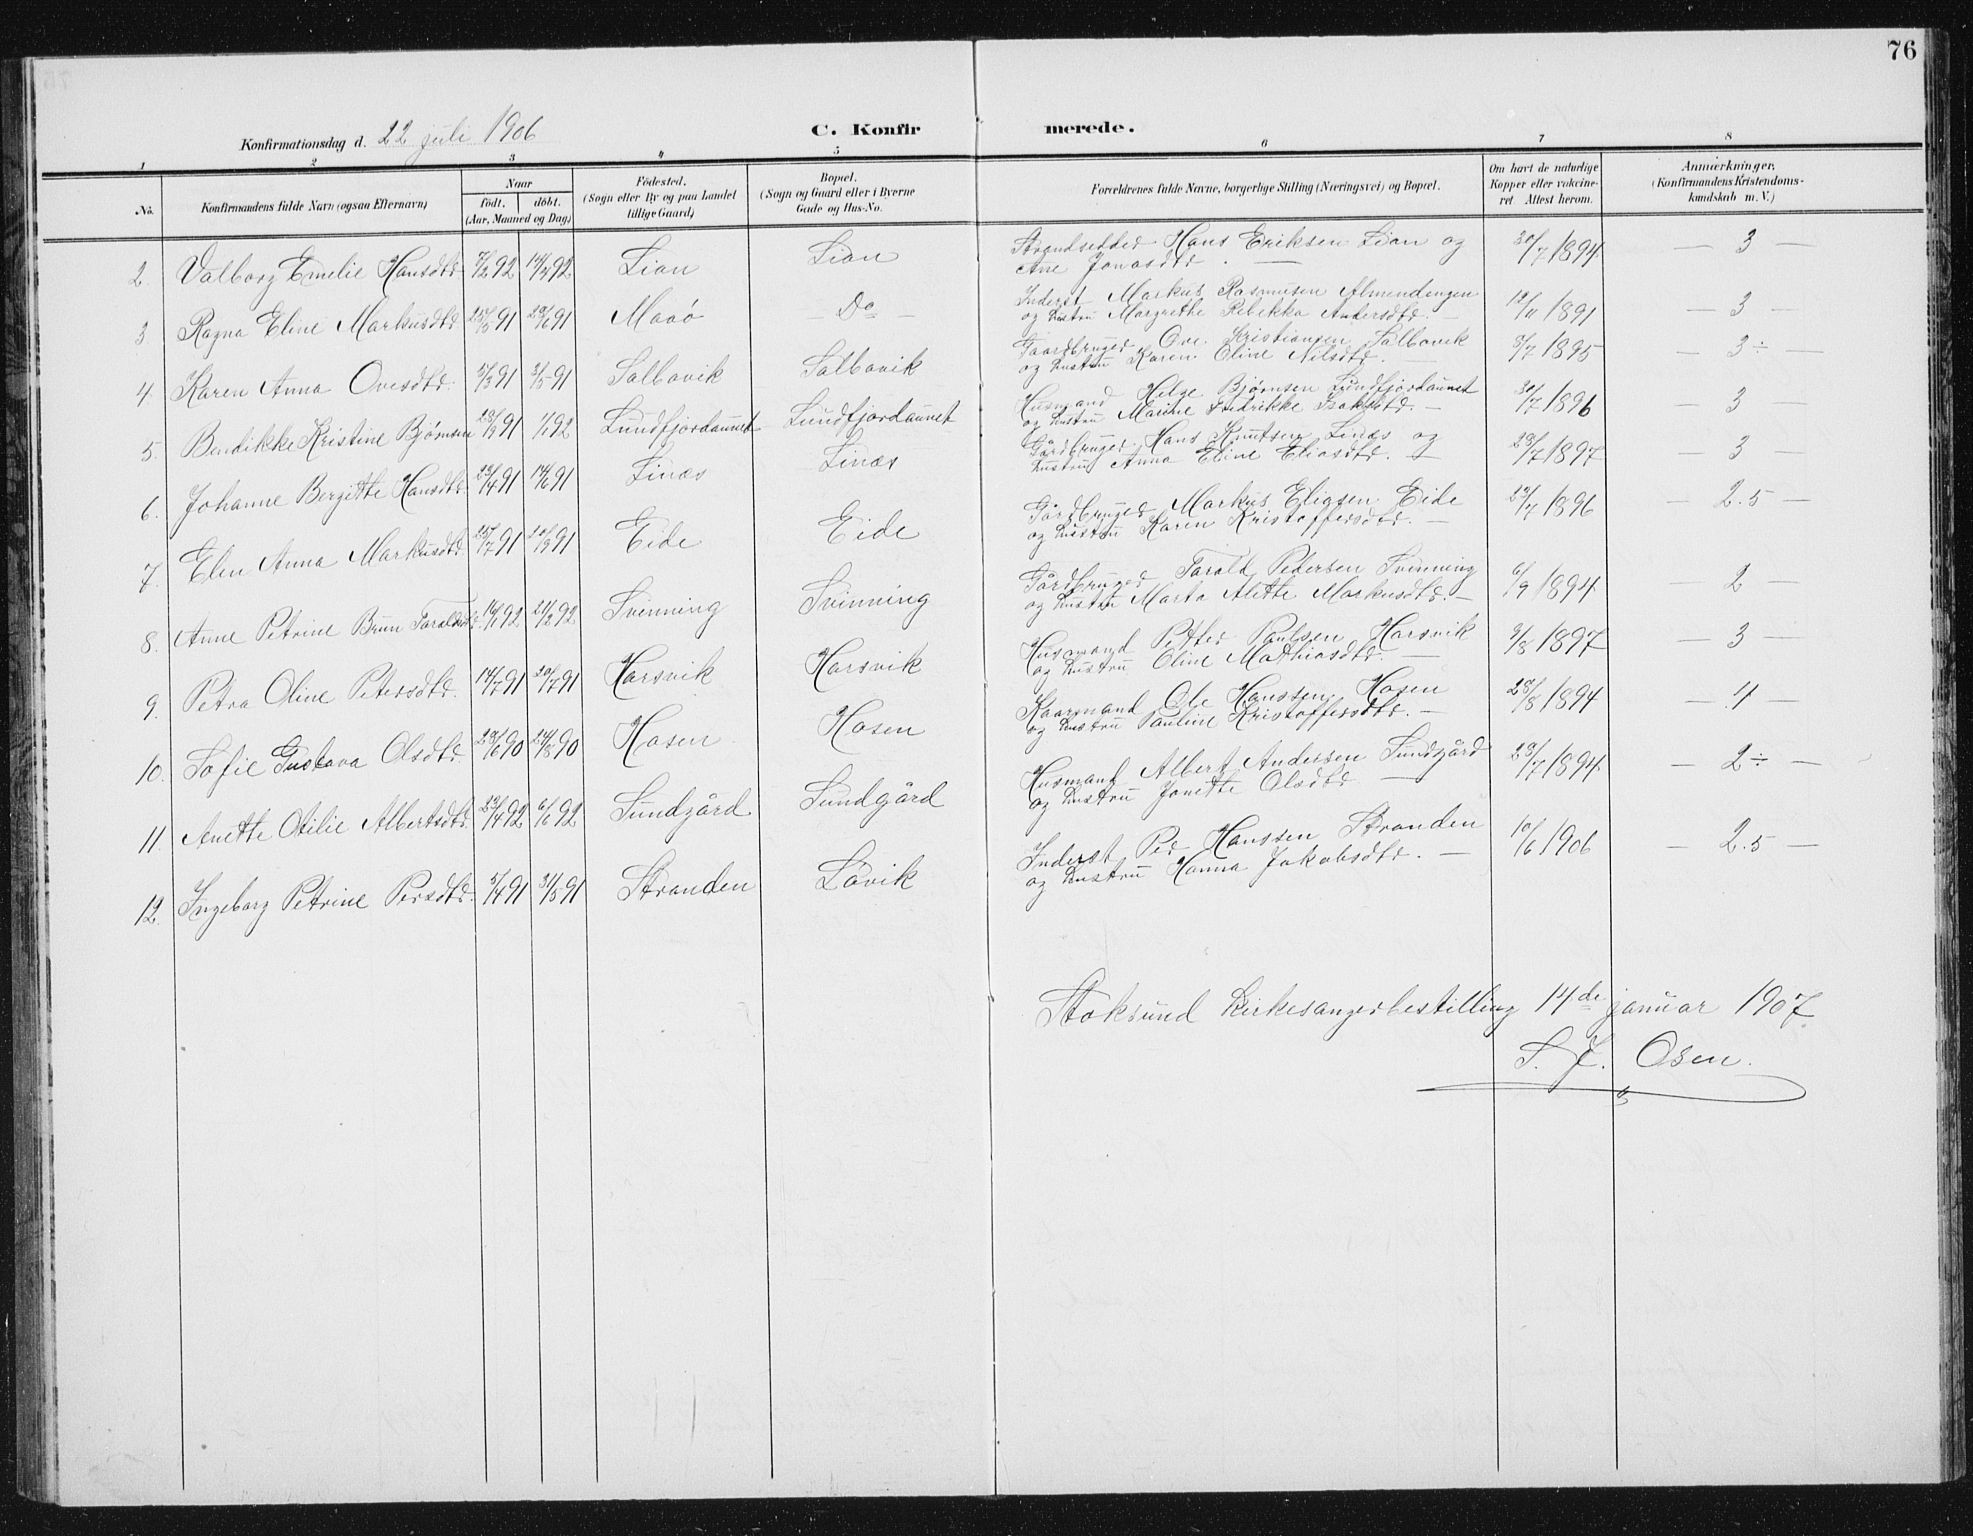 76
Konfirmationsdag d. 22 juli 1906
C. Konfirmerede.
1 2 3 4 5 6 7 8
No.
Konfirmandens fulde Navn (ogsaa Efternavn)
Naar
födt. döbt.
(Aar, Maaned og Dag)
Födested.
(Sogn eller By og paa Landet
tillige Gaard)
Bopæl.
(Sogn og Gaard eller i Byerne
Gade og Hus-No.
Forældrenes fulde Navne, borgerlige Stilling (Næringsvei) og Bopæl.
Om havt de naturlige
Kopper eller vakcine-
ret Attest herom.
Anmærkninger,
(Konfirmandens Kristendoms-
kundskab m. V.)
2 Valborg Emelie Hansdtd 92 14/2 92 Lian Lian
Strandsidder Hans Eriksen Lian og
Ane Jonasdtd. — 20/7 1894 — 3 —
3 Ragna Eline Markusdtd 25/5 91 28/6 91 Maaö — Do —
Inderst Markus Rasmusen Almendingen
og hustru Margrethe Rebekka Andersdtd. — 12/11 1891 — 3 —
4. Karen Anna Ovesdtd. 5/3 91 3/5 91 Salbovik Salbovik
Gaardbruger Ove Kristiansen Salbovik
og hustru Karen Oline Nilsdtd. — 3/7 1895 — 3÷ —
5. Bendikke Kristine Bjørnsen 23/9 91 1/1 92 Sundfjordaunet Sundfjordaunet
Husmand Helge Bjørnsen Sundfjordaunet
og hustru Marine Fredrikke Isaksdtd. — 30/7 1896 — 3 —
6. Johanne Bergitte Hansdtd. 23/4 91 14/6 91 Linæs Linæs
Gårdbruger Hans Knutsen Linæs og
hustru Anna Eline Eliasdtd. — 28/7 1897 — 3 —
7. Elen Anna Markusdtd. 25/7 91 20/9 91 Eide Eide
Gårdbruger Markus Eliasen Eide
og hustru Karen Kristoffersdtd. — 29/7 1896 — 2.5 —
8. Anne Petrine Brun Taraldsdtd. 16/1 92 21/2 92 Svinning Svinning
Gårdbruger Tarald Pedersen Svinning
og hustru Marta Alette Markusdtd. — 6/9 1894 — 2 —
9. Petra Oline Petersdtd. 14/7 91 30/7 91 Harsvik Harsvik
Husmand Petter Paulsen Harsvik
og hustru Oline Mathiasdtd. — 3/8 1897 — 3 —
10. Sofie Gustava Olsdtd. 29/6 90 24/8 90 Hosen Hosen
Kaarmand Ole Hanssen Hosen
og hustru Pauline Kristoffersdtd. — 28/8 1894 — 4 —
11. Anette Otilie Albertsdtd. 29/4 92 6/6 92 Sundgård Sundgård
Husmand Albert Andersen Sundgård
og hustru Janette Olsdtd — 28/7 1894 — 2÷ —
12. Ingeborg Petrine Persdtd. 5/4 91 31/5 91 Stranden Lövik
Inderst Per Hanssen Stranden
og hustru Hanna Jakobsdtd. — 10/6 1906 — 2.5 —
Stoksund Kirkesangerbestilling 14de januar 1907
S. J. Osen.